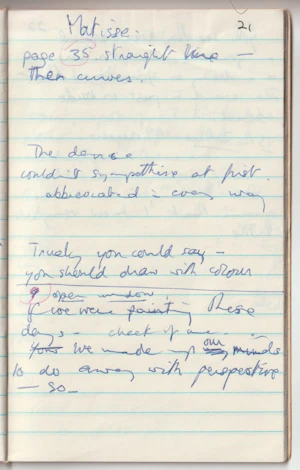 Matisse.
21
page 35 straight line —
then curves.
The dance
couldn't sympathise at first.
abbreviated in every way
Truely you could say —
you should draw with colour
open window
if we were painting these
days — sheet of
We made up our minds
to do away with perspective
— so —